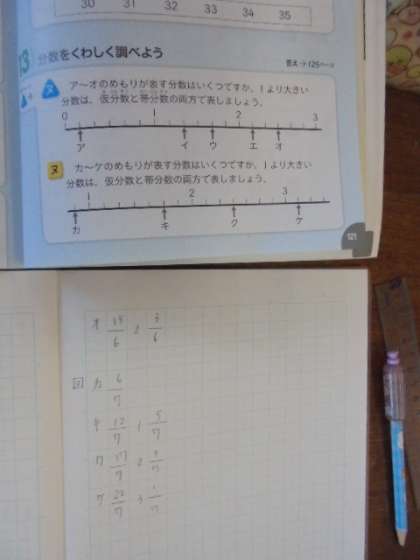 30 31 32 33 34 35
13 分数をくわしく調べよう
答え→125ページ
ヌ ア～オのめもりが表す分数はいくつですか。1より大きい
分数は、仮分数と帯分数の両方で表しましょう。
0 1 2 3
ア イ ウ エ オ
ヌ カ～ケのめもりが表す分数はいくつですか。1より大きい
分数は、仮分数と帯分数の両方で表しましょう。
1 2 3
カ キ ク ケ
121
オ 15/6 2 3/6
カ 6/7
キ 12/7 1 5/7
ク 17/7 2 3/7
ケ 22/7 3 1/7